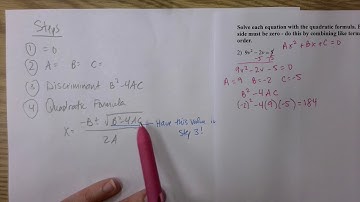 Steps
① = 0
② A= B= C=
③ Discriminant B²-4AC
④ Quadratic Formula
X= -B ± √B²-4AC
2A
← Have this value in
Step 3!
Solve each equation with the quadratic formula.
side must be zero - do this by combining like term
order.
Ax²+Bx+C=0
2) 9x² - 2x =
-5 -5
9x²-2x-5=0
A=9 B=-2 C=-5
B²-4AC
(-2)²-4(9)(-5)=184